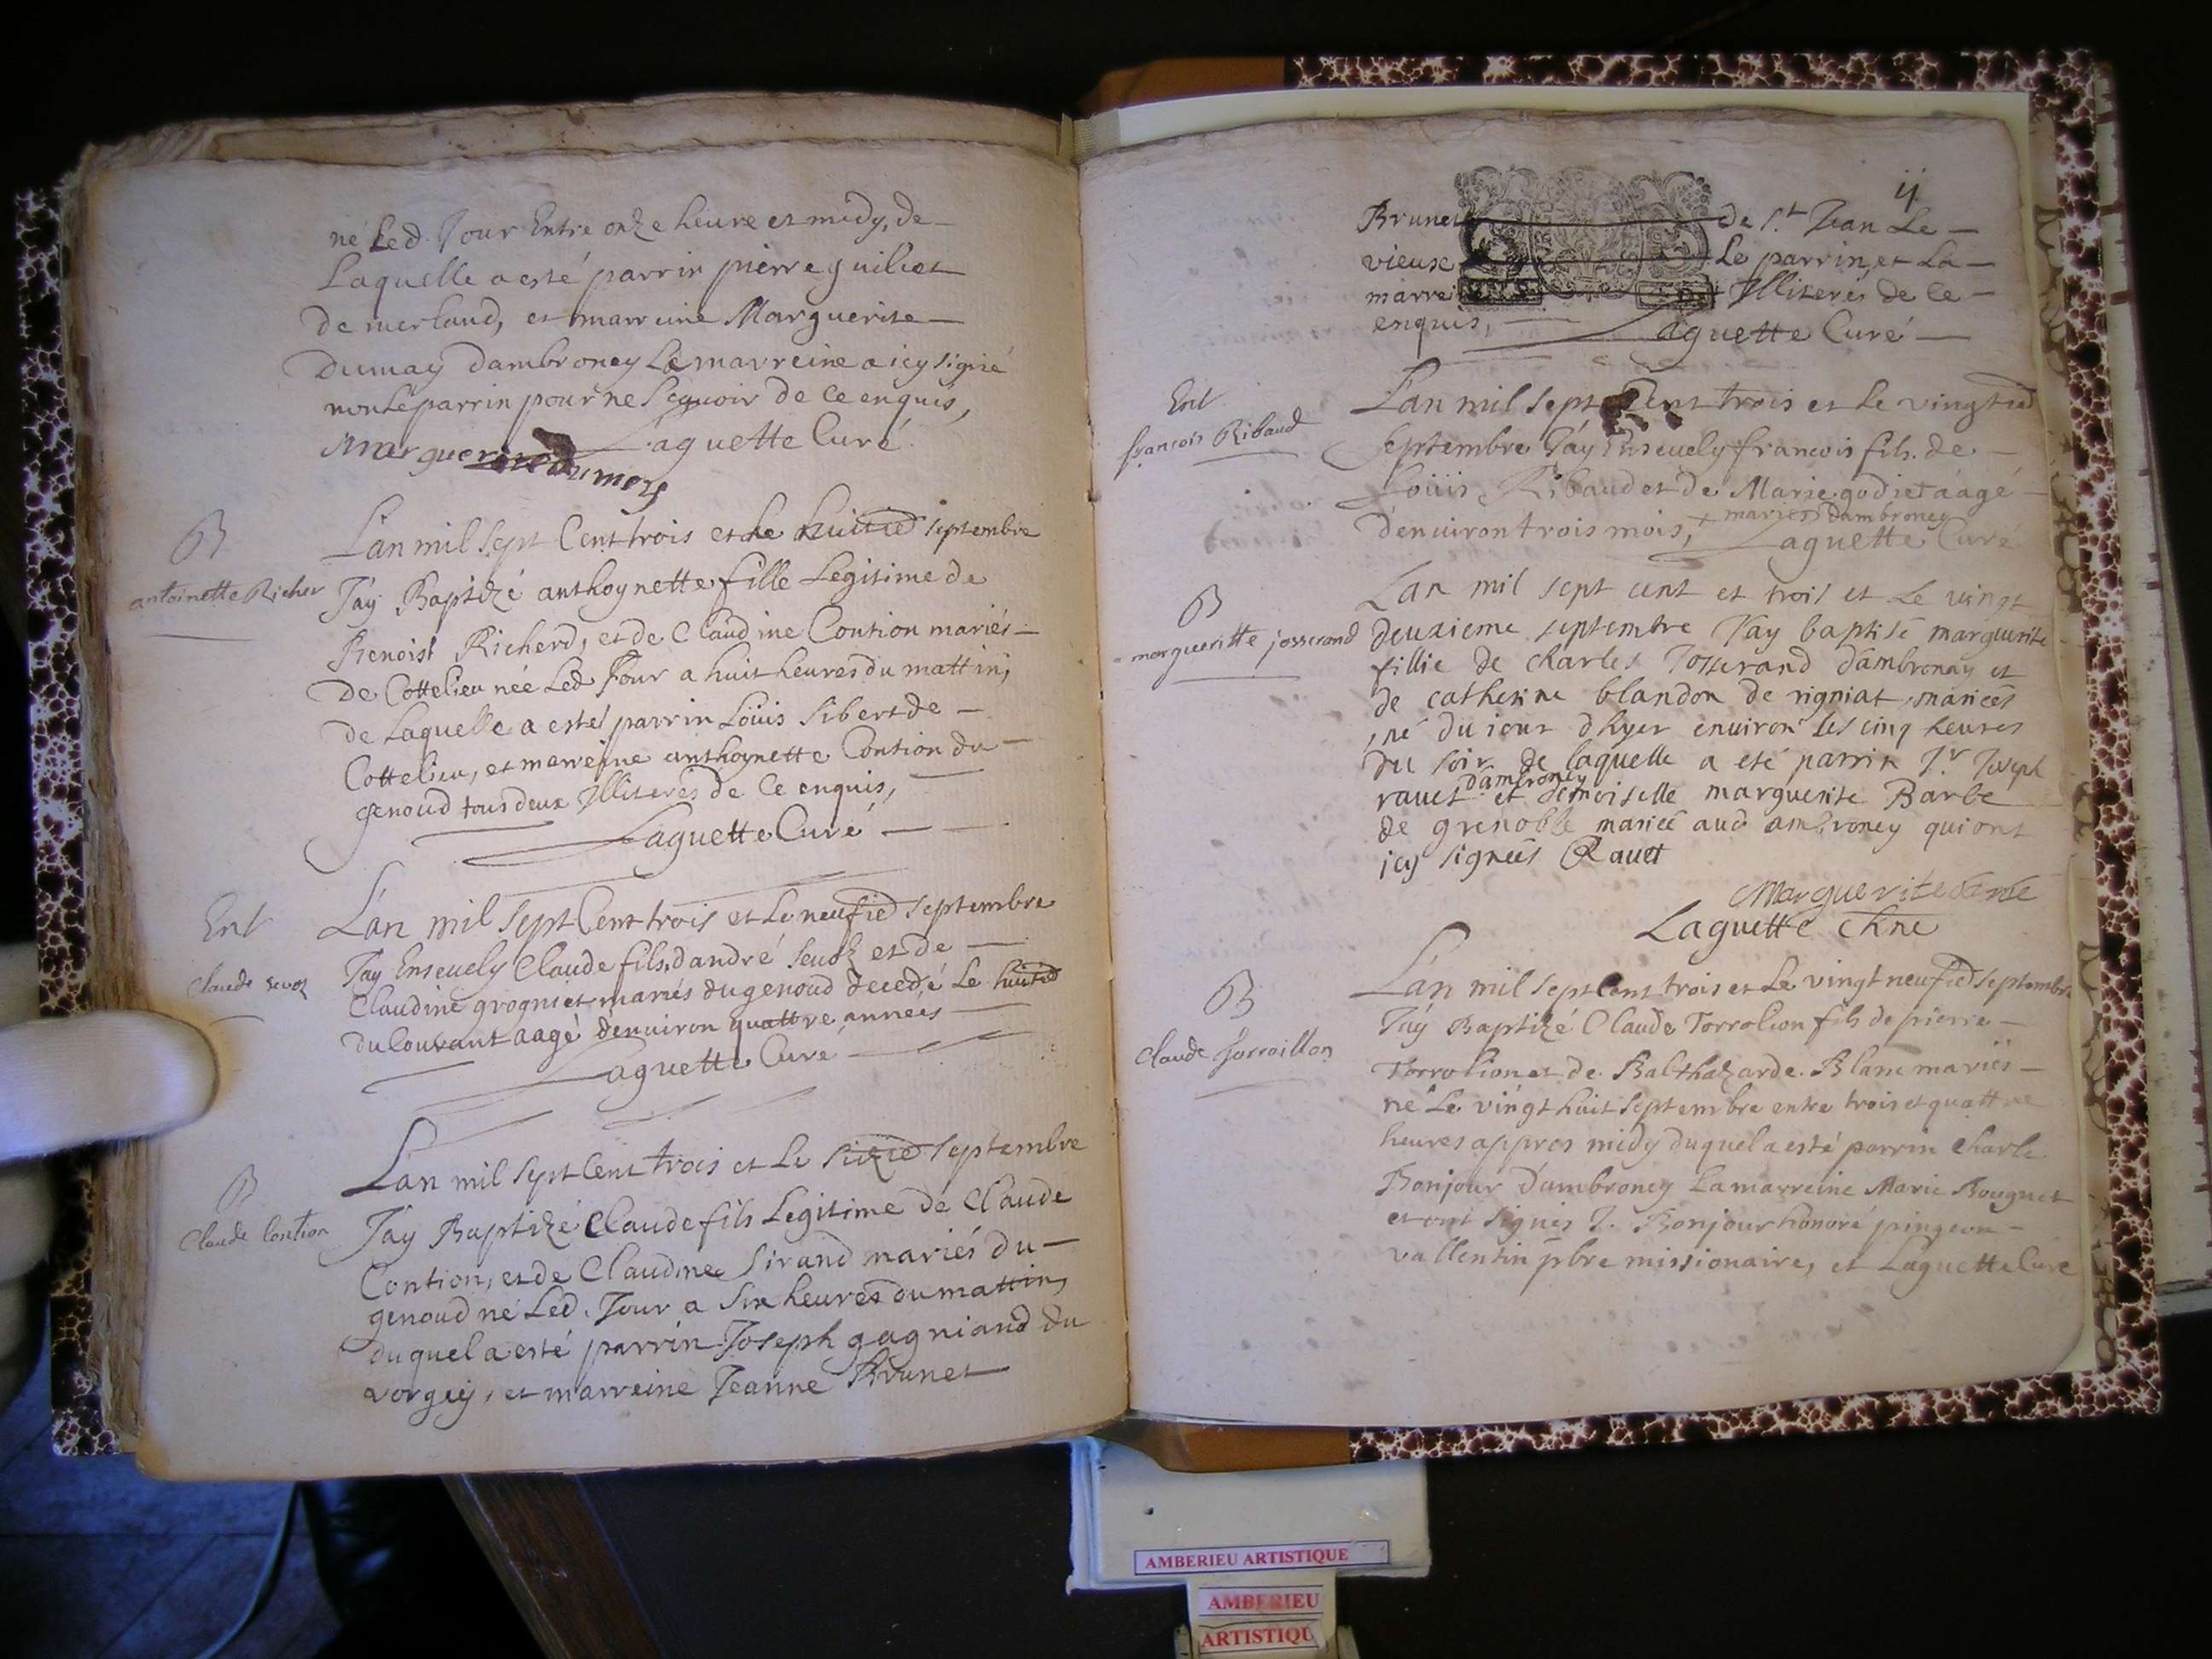 né Led. Jour Entre onze heure et midy, de
Laquelle a esté parrin pierre guilliet
de merland, et marreine Marguerite
Dumay dambroney La marreine a icy signé
non Le parrin pour ne Sçavoir de ce enquis,
Marguerite dumay Laguette Curé
B
antoinette Richer
L'an mil sept Cent trois et le huitie septembre
J'ay Baptizé anthoynette fille Legitime de
Benoist Richerd, et de Claudine Contion mariés
de Cottelieu née Led Jour a huit heures du mattin,
de Laquelle a esté parrin Loüis Sibert de
Cottelieu, et marreine anthoynette Contion du
genoud tous deux Illiterés de Ce enquis,
Laguette Curé
Ent
Claude sevoz
L'an mil sept Cent trois et Le neufie septembre
J'ay Ensevely Claude fils d'andré sevoz et de
Claudine grogniet mariés du genoud decedé Le huitie
du Courant aagé d'environ quattre années
Laguette Curé
B
Claude Contion
L'an mil sept Cent trois et Le sizie septembre
J'ay Baptizé Claude fils Legitime de Claude
Contion, et de Claudine Sirand mariés du
genoud né Led. Jour a Six heures du mattin,
duquel a esté parrin Joseph gagniand du
vorgey, et marreine Jeanne Brunet
ij
Brunet de St. Jean Le
vieux Le parrin, et La
marreine Illiterés de Ce
enquis, Laguette Curé
Ent
françois Ribaud
L'an mil sept Cent trois et Le vingtie
septembre J'ay Ensevely francois fils de
Loüis Ribaud et de Marie godiet aagé
d'environ trois mois, + mariés dambroney
Laguette Curé
B
margueritte josserand
Lan mil sept cent et trois et Le vingt
deuxieme septembre J'ay baptisé marguerite
fillie de charles Josserand d'ambronay et
de catherine blandon de rigniat mariees
né du jour d'hyer environ les cinq heures
du soir de laquelle a eté parrin Sr. Joseph
ravet dambroney et demoiselle marguerite Barbe
de grenoble mariée aud ambroney qui ont
icy signeés Ravet
Marguerite
Laguette
B
Claude forroillon
L'an mil sept Cent trois et Le vingt neufie septembre
J'ay Baptizé Claude Torrolion fils de pierre
Torrolion et de Balthazarde Blanc mariés
né Le vingt huit septembre entre trois et quattre
heures appres midy duquel a esté parrin Charle
Bonjour d'ambroney La marreine Marie Bouguet
et ont signés J. Bonjour honoré pingeon
vallentin pbre missionaire, et Laguette Curé
AMBERIEU ARTISTIQUE
AMBERIEU
ARTISTIQU